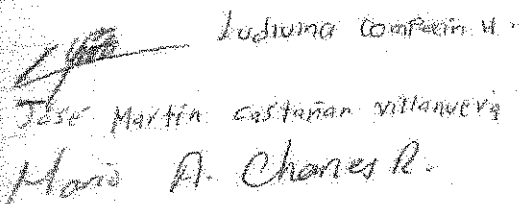 Ludivina Compean H.
José Martín Castañan Villanueva
Mario A. Charles R.